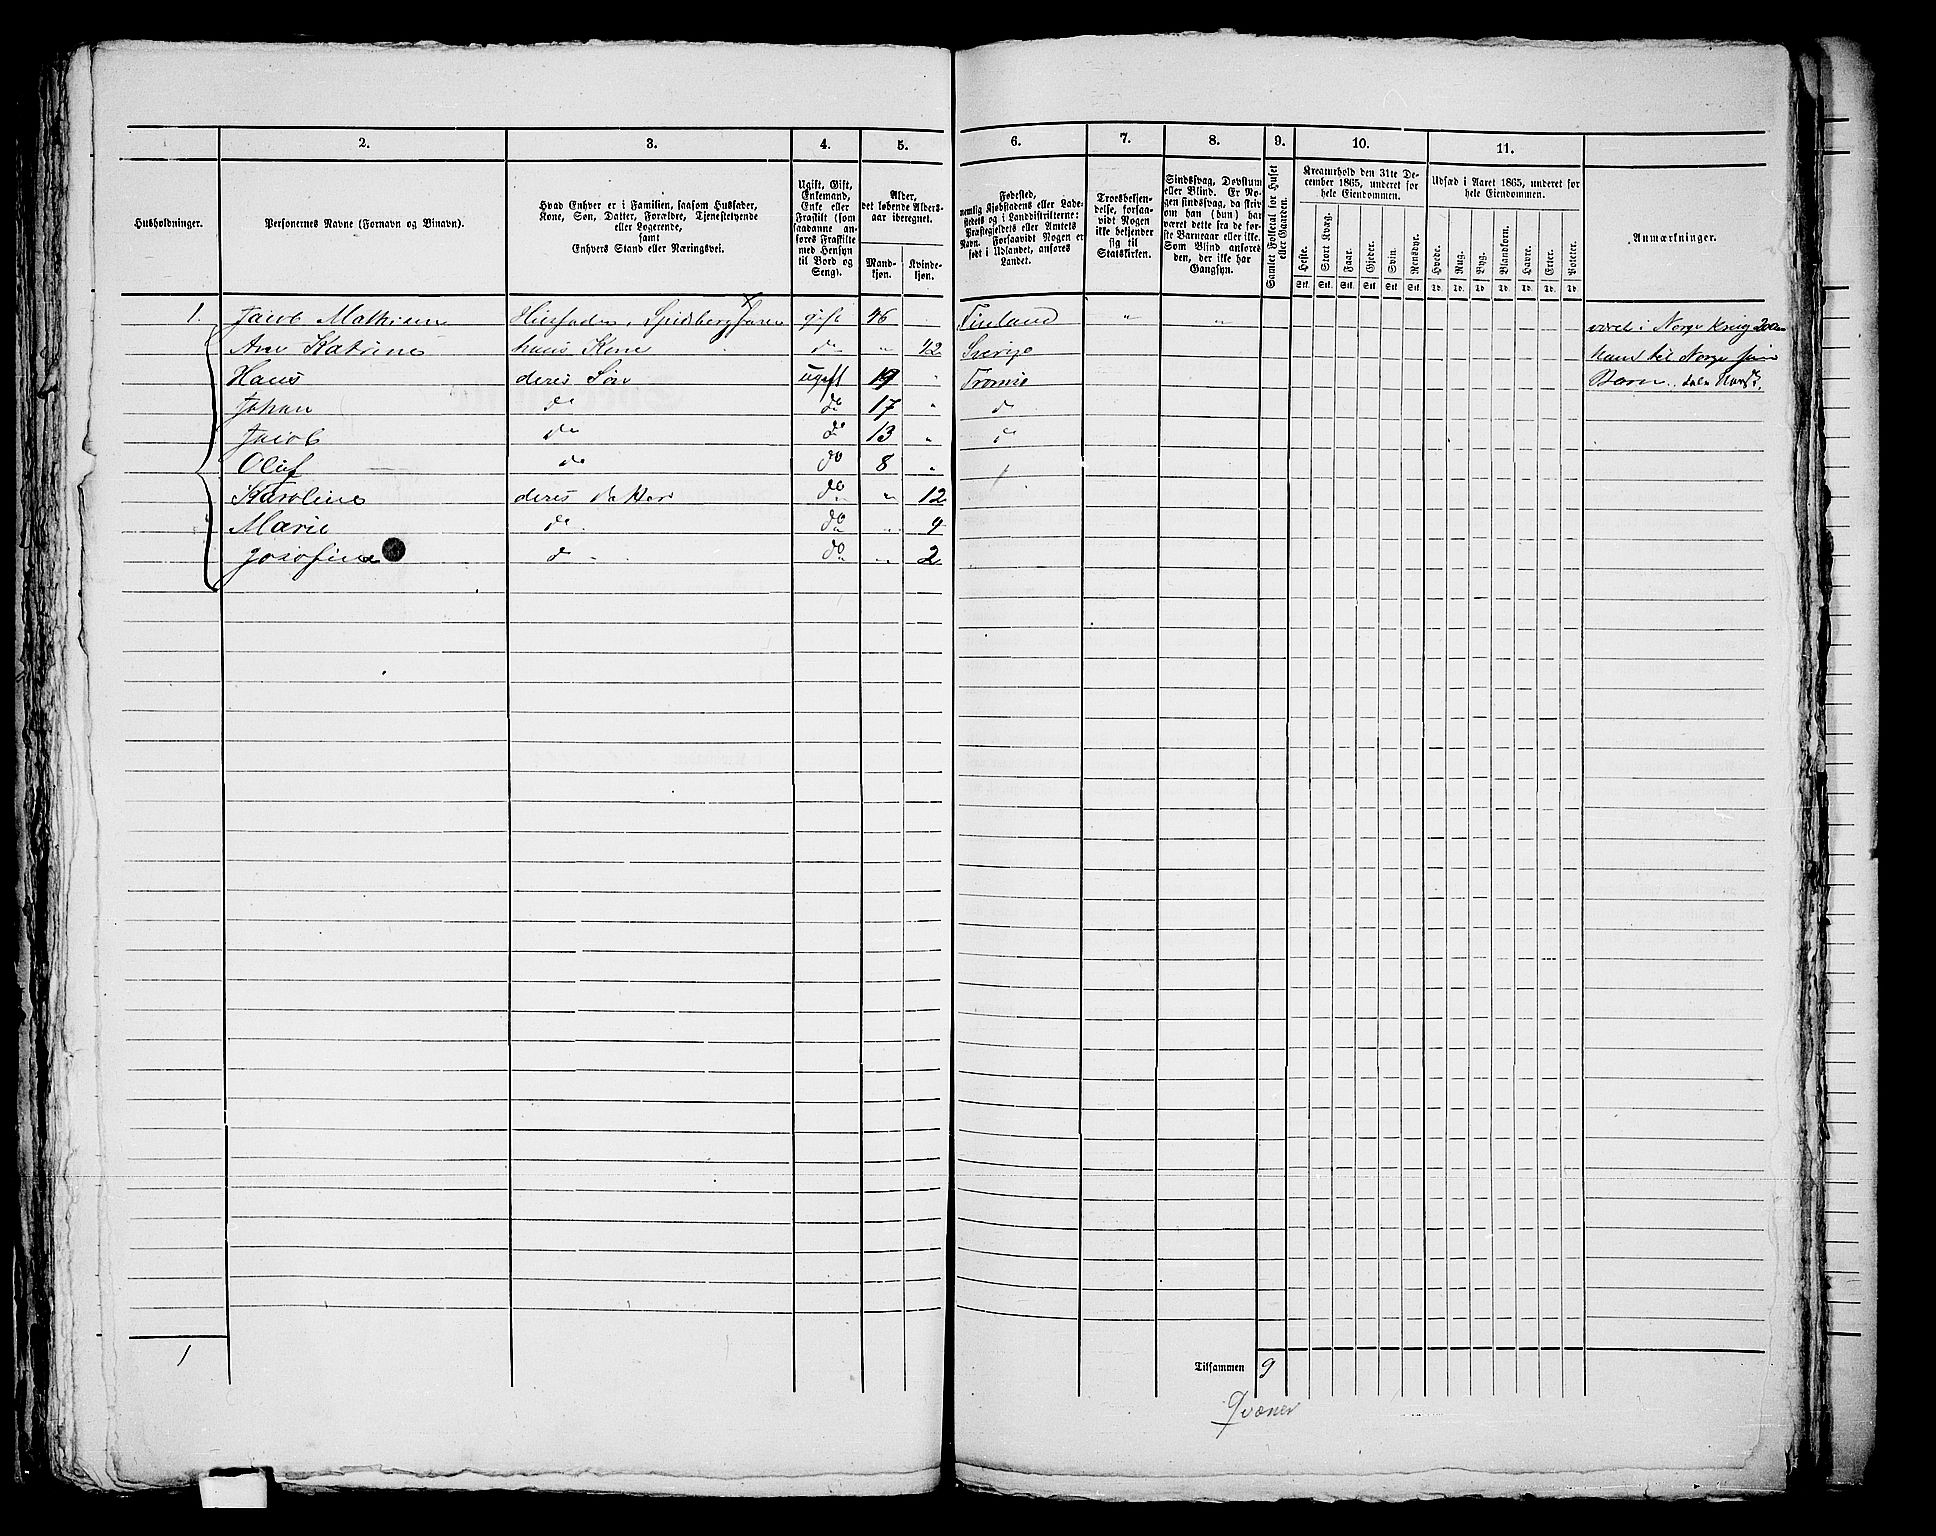 1 2. 3. 4. 5. 6. 7. 8. 9. 10. 11.
Husholdninger.
Personernes Navne (Fornavn og Binavn).
Hvad Enhver er i Familien, saasom Husfader,
Kone, Søn, Datter, Forældre, Tjenestetyende
eller Logerende,
samt
Enhvers Stand eller Næringsvei.
Ugift, Gift,
Enkemand,
Enke eller
Fraskilt (som
saadanne an-
føres Fraskilte
med Hensyn
til Bord og
Seng).
Alder,
det løbende Alders-
aar iberegnet.
Mand-
kjøn.
Kvinde-
kjøn.
Fødested,
nemlig Kjøbstadens eller Lade-
stedets og i Landdistrikterne:
Præstegjeldets eller Amtets
Navn. Forsaavidt Nogen er
født i Udlandet, anføres
Landet.
Troesbekjen-
delse, forsaa-
vidt Nogen
ikke bekjender
sig til
Statskirken.
Sindssvag, Døvstum
eller Blind. Er No-
gen sindssvag, da skriv
om han (hun) har
været dette fra de før-
ste Barneaar eller ikke.
Som Blind anføres
den, der ikke har
Gangsyn.
Samlet Folketal for Huset
eller Gaarden.
Kreaturhold den 31te De-
cember 1865, underet for
hele Eiendommen.
Heste. Stort Kvæg. Faar. Gjeder. Svin. Rensdyr.
Stk. Stk. Stk. Stk. Stk. Stk.
Udsæd i Aaret 1865, underet for
hele Eiendommen.
Hvede. Rug. Byg. Blandkorn. Havre. Erter. Poteter.
Td. Td. Td. Td. Td. Td. Td.
Anmærkninger.
1. Jacob Mathisen Husfader, Spidsbergfarer gift 46 Finland " " været i Norge 20
Ane Katrine hans Kone do " 42 Sverige til Norge
Hans deres Søn ugift 19 " Tromsø Barn. tale Norsk.
Johan do do 17 " do
Jacob do do 13 " do
Oluf do do 8 "
Karoline deres datter do " 12
Marie do do " 4
Josefine do do " 2
1 Tilsammen 9
Qvæner